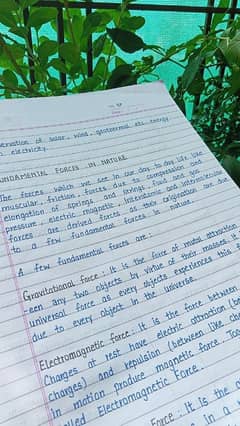 ervation of solar, wind, geothermal etc. energy
electricity.
UNDAMENTAL FORCES IN NATURE
The forces which we see in our day to day life like
muscular, friction, forces due to compression and
elongation of springs and strings, fluid and gas
pressure, electric, magnetic, interatomic and intermolecular
forces are derived forces as their originations are due
to a few fundamental forces in nature.
A few fundamental forces are :
Gravitational force : It is the force of mutual attraction
-een any two objects by virtue of their masses. It
universal force as every objects experiences this
due to every object in the universe.
Electromagnetic force : It is the force between
Charges at rest have electric attraction (be
charges) and repulsion (between like
in motion produce magnetic force. Tog
lled Electromagnetic Force.
Force : It is the